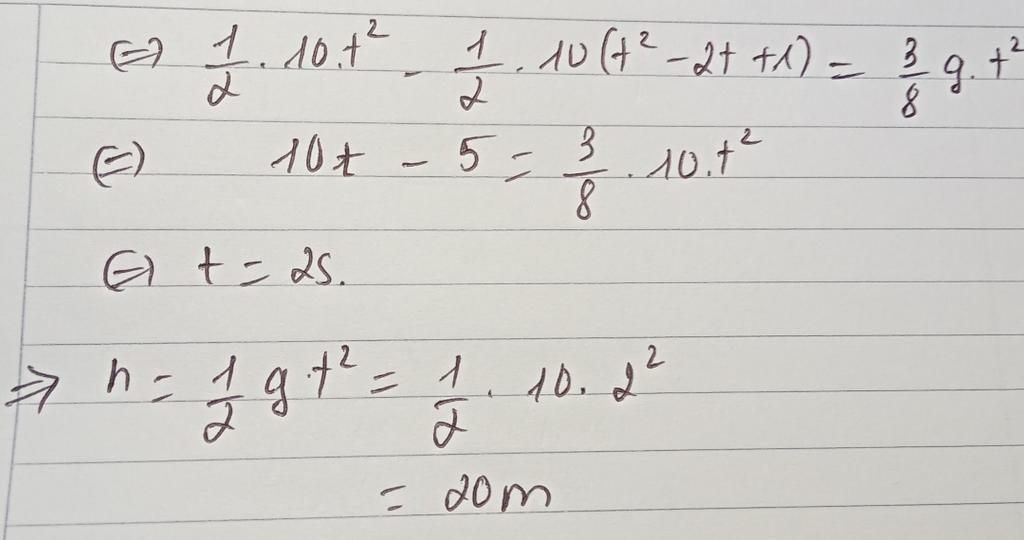 ⇔ 1/2 . 10.t² - 1/2 . 10(t² - 2t + 1) = 3/8 g.t²
⇔ 10t - 5 = 3/8 . 10.t²
⇔ t = 2s.
⇒ h = 1/2 g.t² = 1/2 . 10. 2²
= 20m